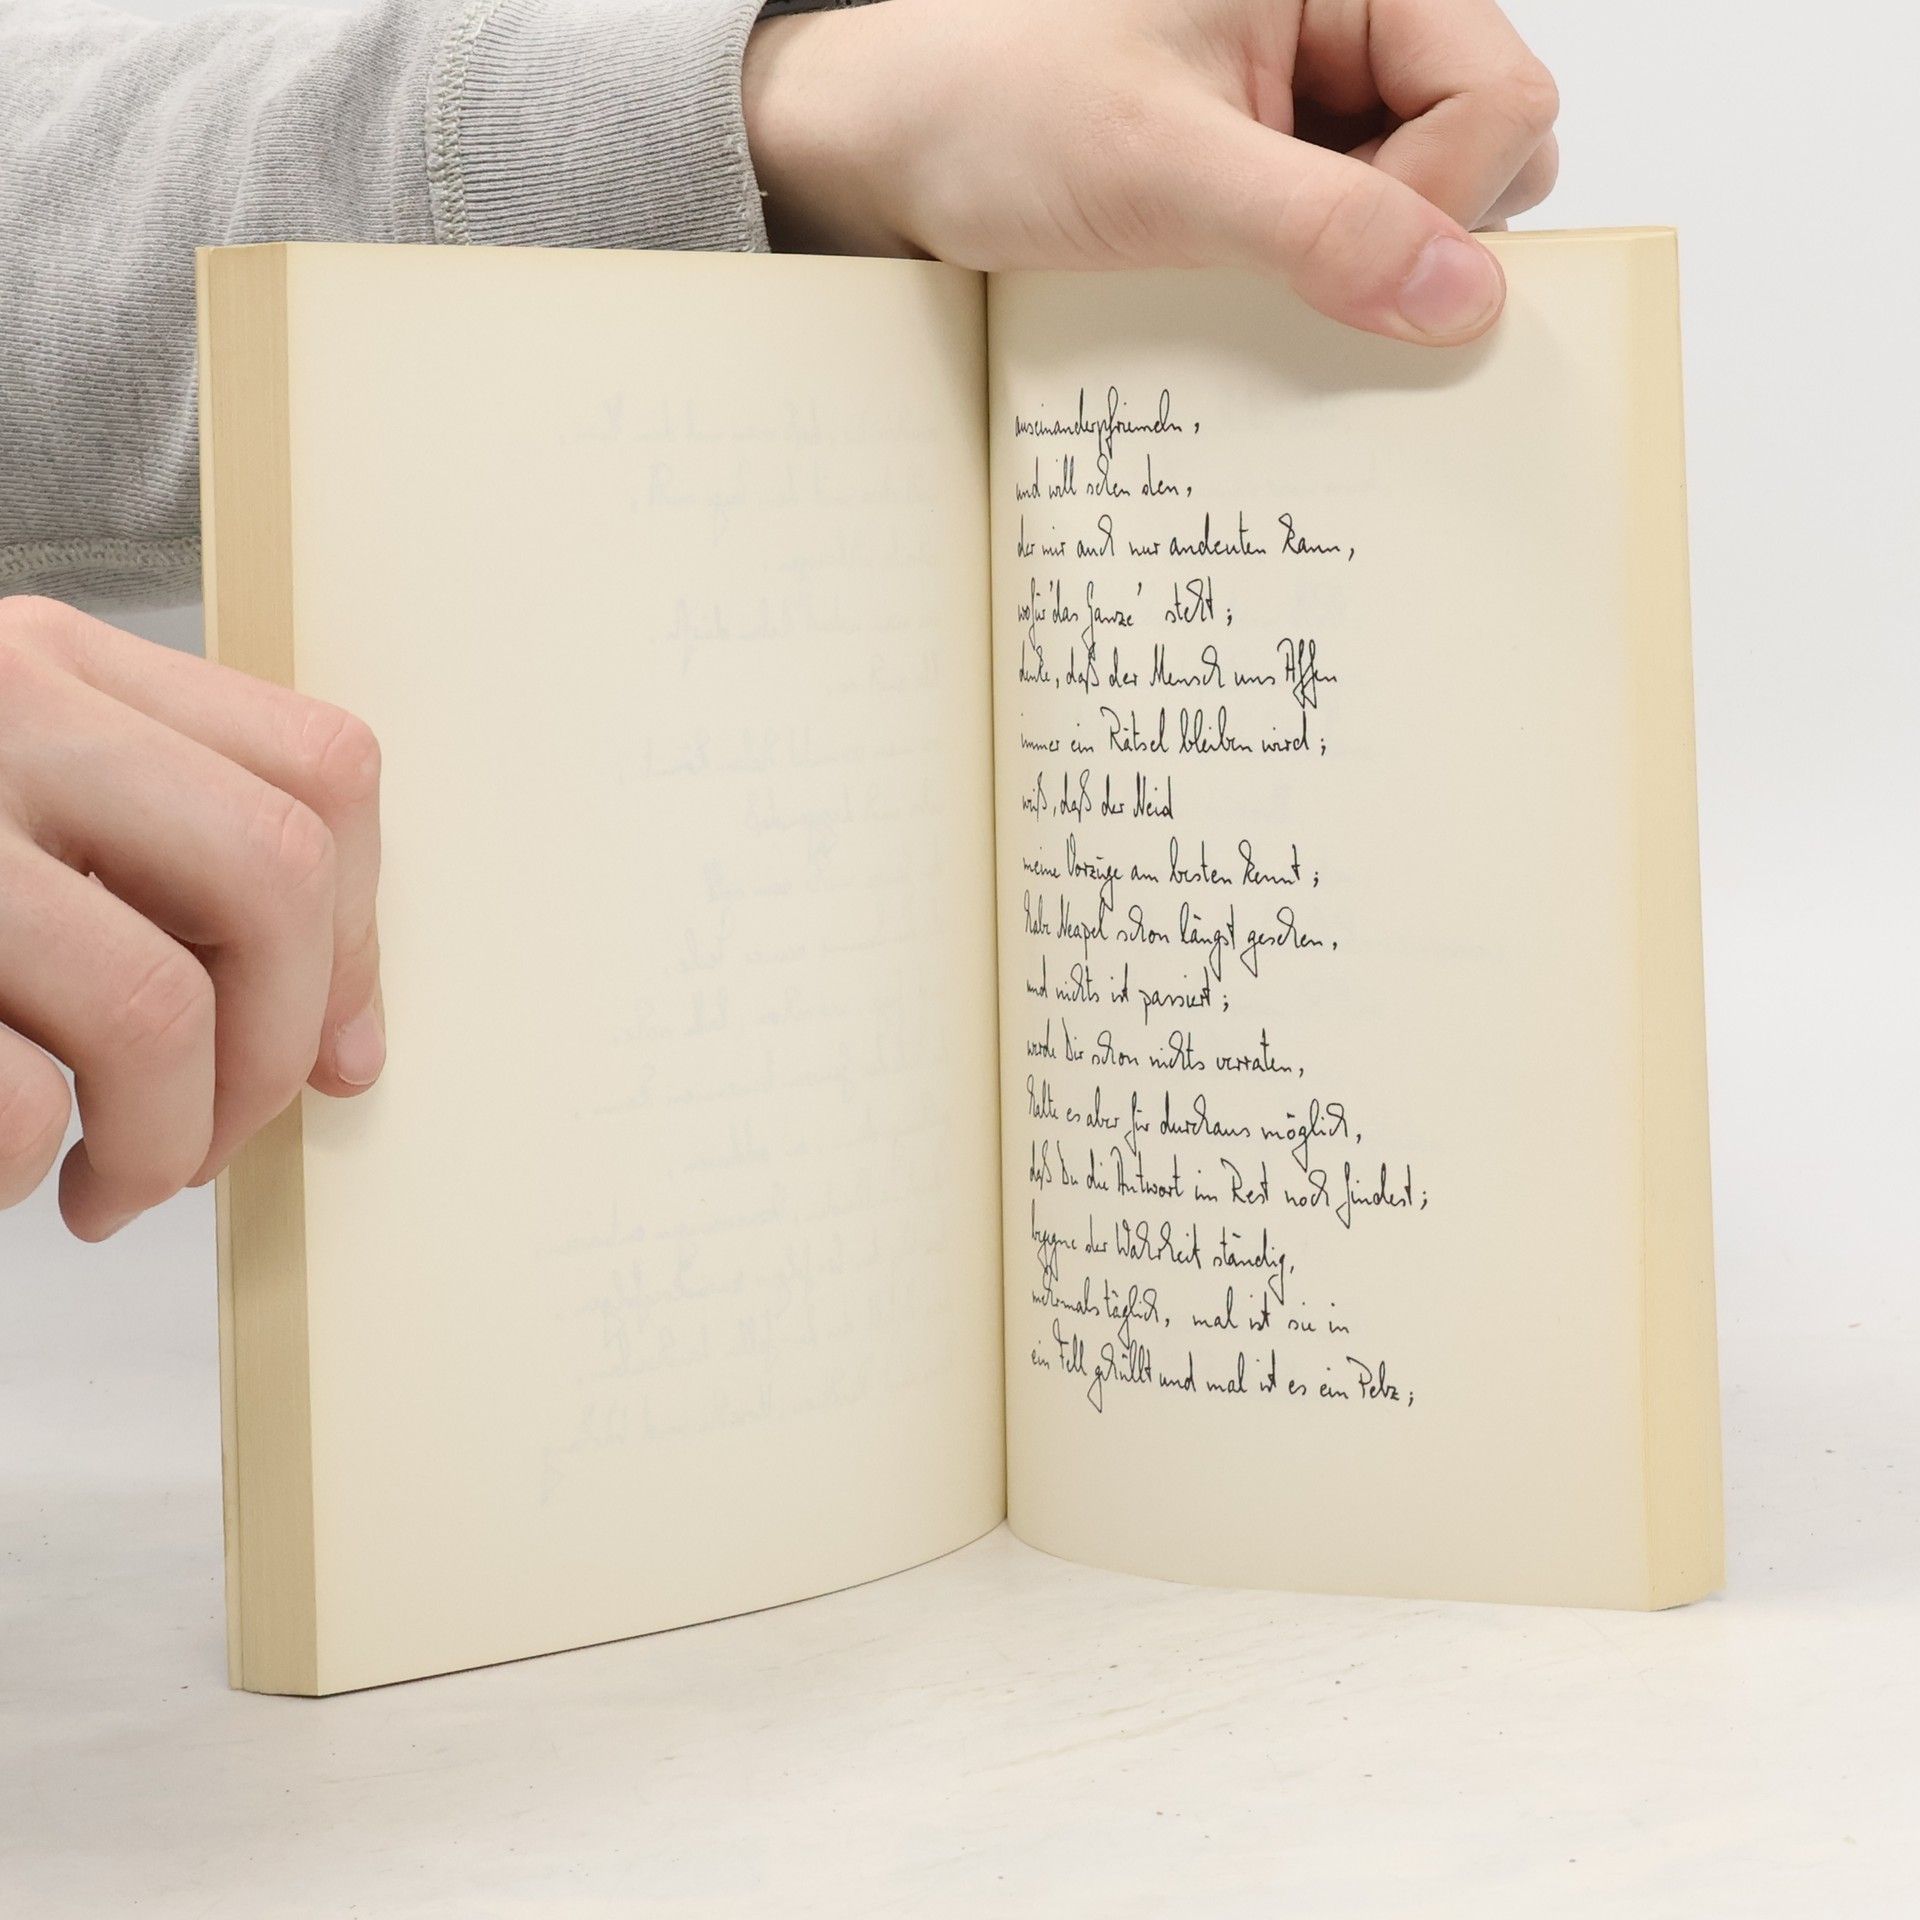 auseinanderpfriemeln,
und will sehen den,
der mir auch nur andeuten kann,
wofür 'das Ganze' steht;
denke, daß der Mensch uns Affen
immer ein Rätsel bleiben wird;
weiß, daß der Neid
meine Vorzüge am besten kennt;
habe Neapel schon längst gesehen,
und nichts ist passiert;
werde Dir schon nichts verraten,
halte es aber für durchaus möglich,
daß Du die Antwort im Rest noch findest;
begegne der Wahrheit ständig,
mehrmals täglich, mal ist sie in
ein Fell gehüllt und mal ist es ein Pelz;